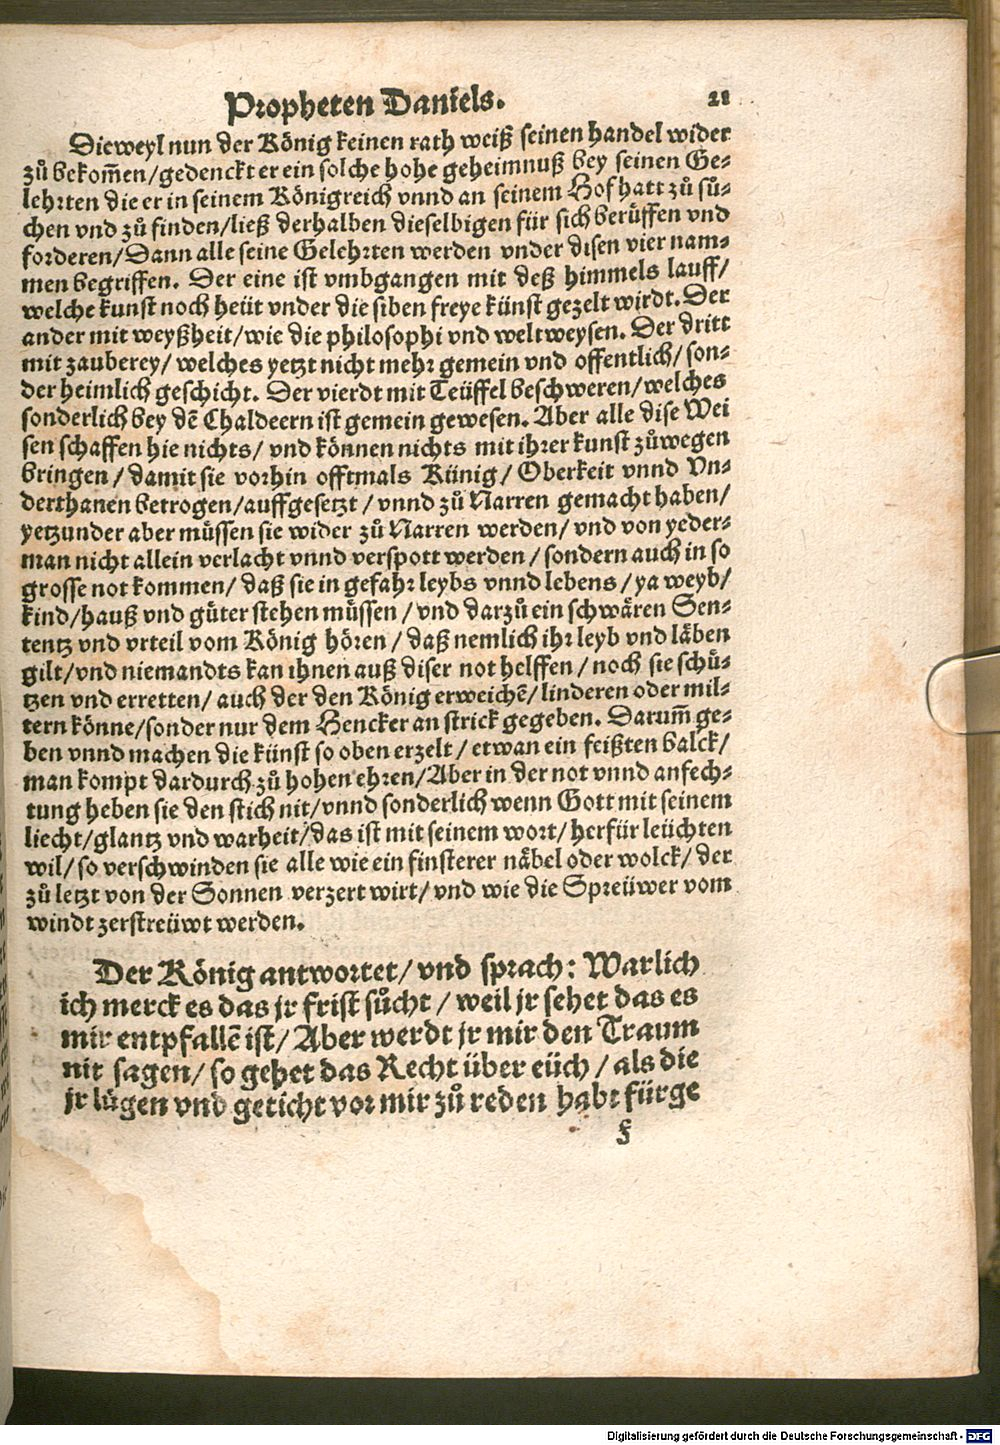 Propheten Daniels. 21
Dieweyl nun der König keinen rath weiß seinen handel wider
zů bekom̃en/gedenckt er ein solche hohe geheimnuß bey seinen Ge-
lehrten die er in seinem Königreich vnnd an seinem Hof hatt zů sů-
chen vnd zů finden/ließ derhalben dieselbigen für sich berüffen vnd
forderen/Dann alle seine Gelehrten werden vnder disen vier nam-
men begriffen. Der eine ist vmbgangen mit deß himmels lauff/
welche kunst noch heüt vnder die siben freye künst gezelt wirdt. Der
ander mit weyßheit/wie die philosophi vnd weltweysen. Der dritt
mit zauberey/ welches yetzt nicht mehr gemein vnd offentlich/ son-
der heimlich geschicht. Der vierdt mit Teüffel beschweren/welches
sonderlich bey dẽ Chaldeern ist gemein gewesen. Aber alle dise Wei
sen schaffen hie nichts/ vnd können nichts mit ihrer kunst zůwegen
bringen/ damit sie vorhin offtmals Künig/ Oberkeit vnnd Vn-
derthanen betrogen/auffgesetzt/ vnnd zů Narren gemacht haben/
yetzunder aber müssen sie wider zů Narren werden/ vnd von yeder-
man nicht allein verlacht vnnd verspott werden/ sondern auch in so
grosse not kommen/ daß sie in gefahr leybs vnnd lebens/ ya weyb/
kind/hauß vnd güter stehen müssen/ vnd darzů ein schwären Sen-
tentz vnd vrteil vom König hören/ daß nemlich ihr leyb vnd läben
gilt/vnd niemandts kan ihnen auß diser not helffen/ noch sie schü-
tzen vnd erretten/ auch der den König erweichẽ/linderen oder mil-
tern könne/sonder nur dem Hencker an strick gegeben. Darum̃ ge-
ben vnnd machen die künst so oben erzelt/ etwan ein feißten balck/
man kompt dardurch zů hohen ehren/Aber in der not vnnd anfech-
tung heben sie den stich nit/vnnd sonderlich wenn Gott mit seinem
liecht/glantz vnd warheit/das ist mit seinem wort/ herfür leüchten
wil/ so verschwinden sie alle wie ein finsterer näbel oder wolck/ der
zů letzt von der Sonnen verzert wirt/ vnd wie die Spreüwer vom
windt zerstreüwt werden.
Der König antwortet/ vnd sprach: Warlich
ich merck es das jr frist sůcht/ weil jr sehet das es
mir entpfallẽ ist/ Aber werdt jr mir den Traum
nit sagen/ so gehet das Recht über eüch/ als die
jr lügen vnd geticht vor mir zů reden habt fürge
f
Digitalisierung gefördert durch die Deutsche Forschungsgemeinschaft - DFG